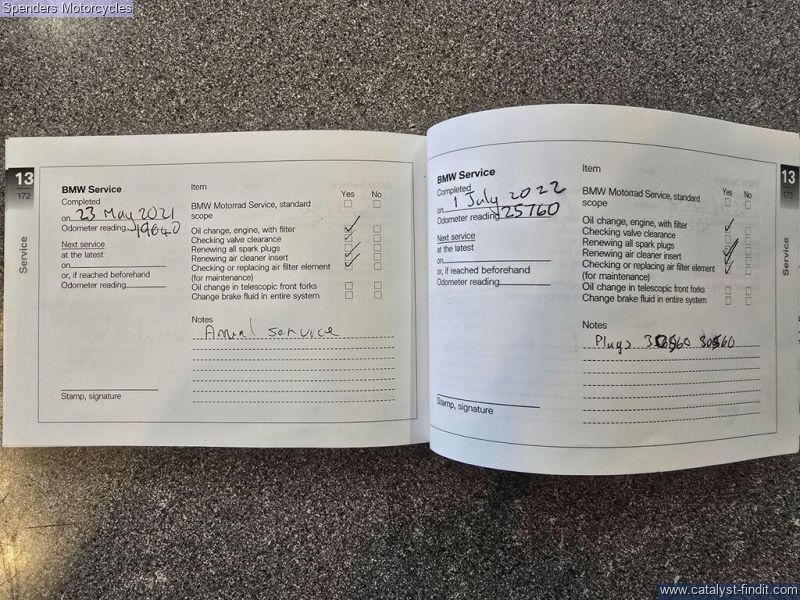 Spenders Motorcycles
13
172
Service
BMW Service
Completed
on 23 May 2021
Odometer reading 19640
Next service
at the latest
on
or, if reached beforehand
Odometer reading
Stamp, signature
Item
Yes No
BMW Motorrad Service, standard
scope
Oil change, engine, with filter
Checking valve clearance
Renewing all spark plugs
Renewing air cleaner insert
Checking or replacing air filter element
(for maintenance)
Oil change in telescopic front forks
Change brake fluid in entire system
Notes
Annual service
BMW Service
Completed
on 1 July 2022
Odometer reading 25760
Next service
at the latest
on
or, if reached beforehand
Odometer reading
Stamp, signature
Item
Yes No
BMW Motorrad Service, standard
scope
Oil change, engine, with filter
Checking valve clearance
Renewing all spark plugs
Renewing air cleaner insert
Checking or replacing air filter element
(for maintenance)
Oil change in telescopic front forks
Change brake fluid in entire system
Notes
Plugs
13
173
Service
www.catalyst-findit.com